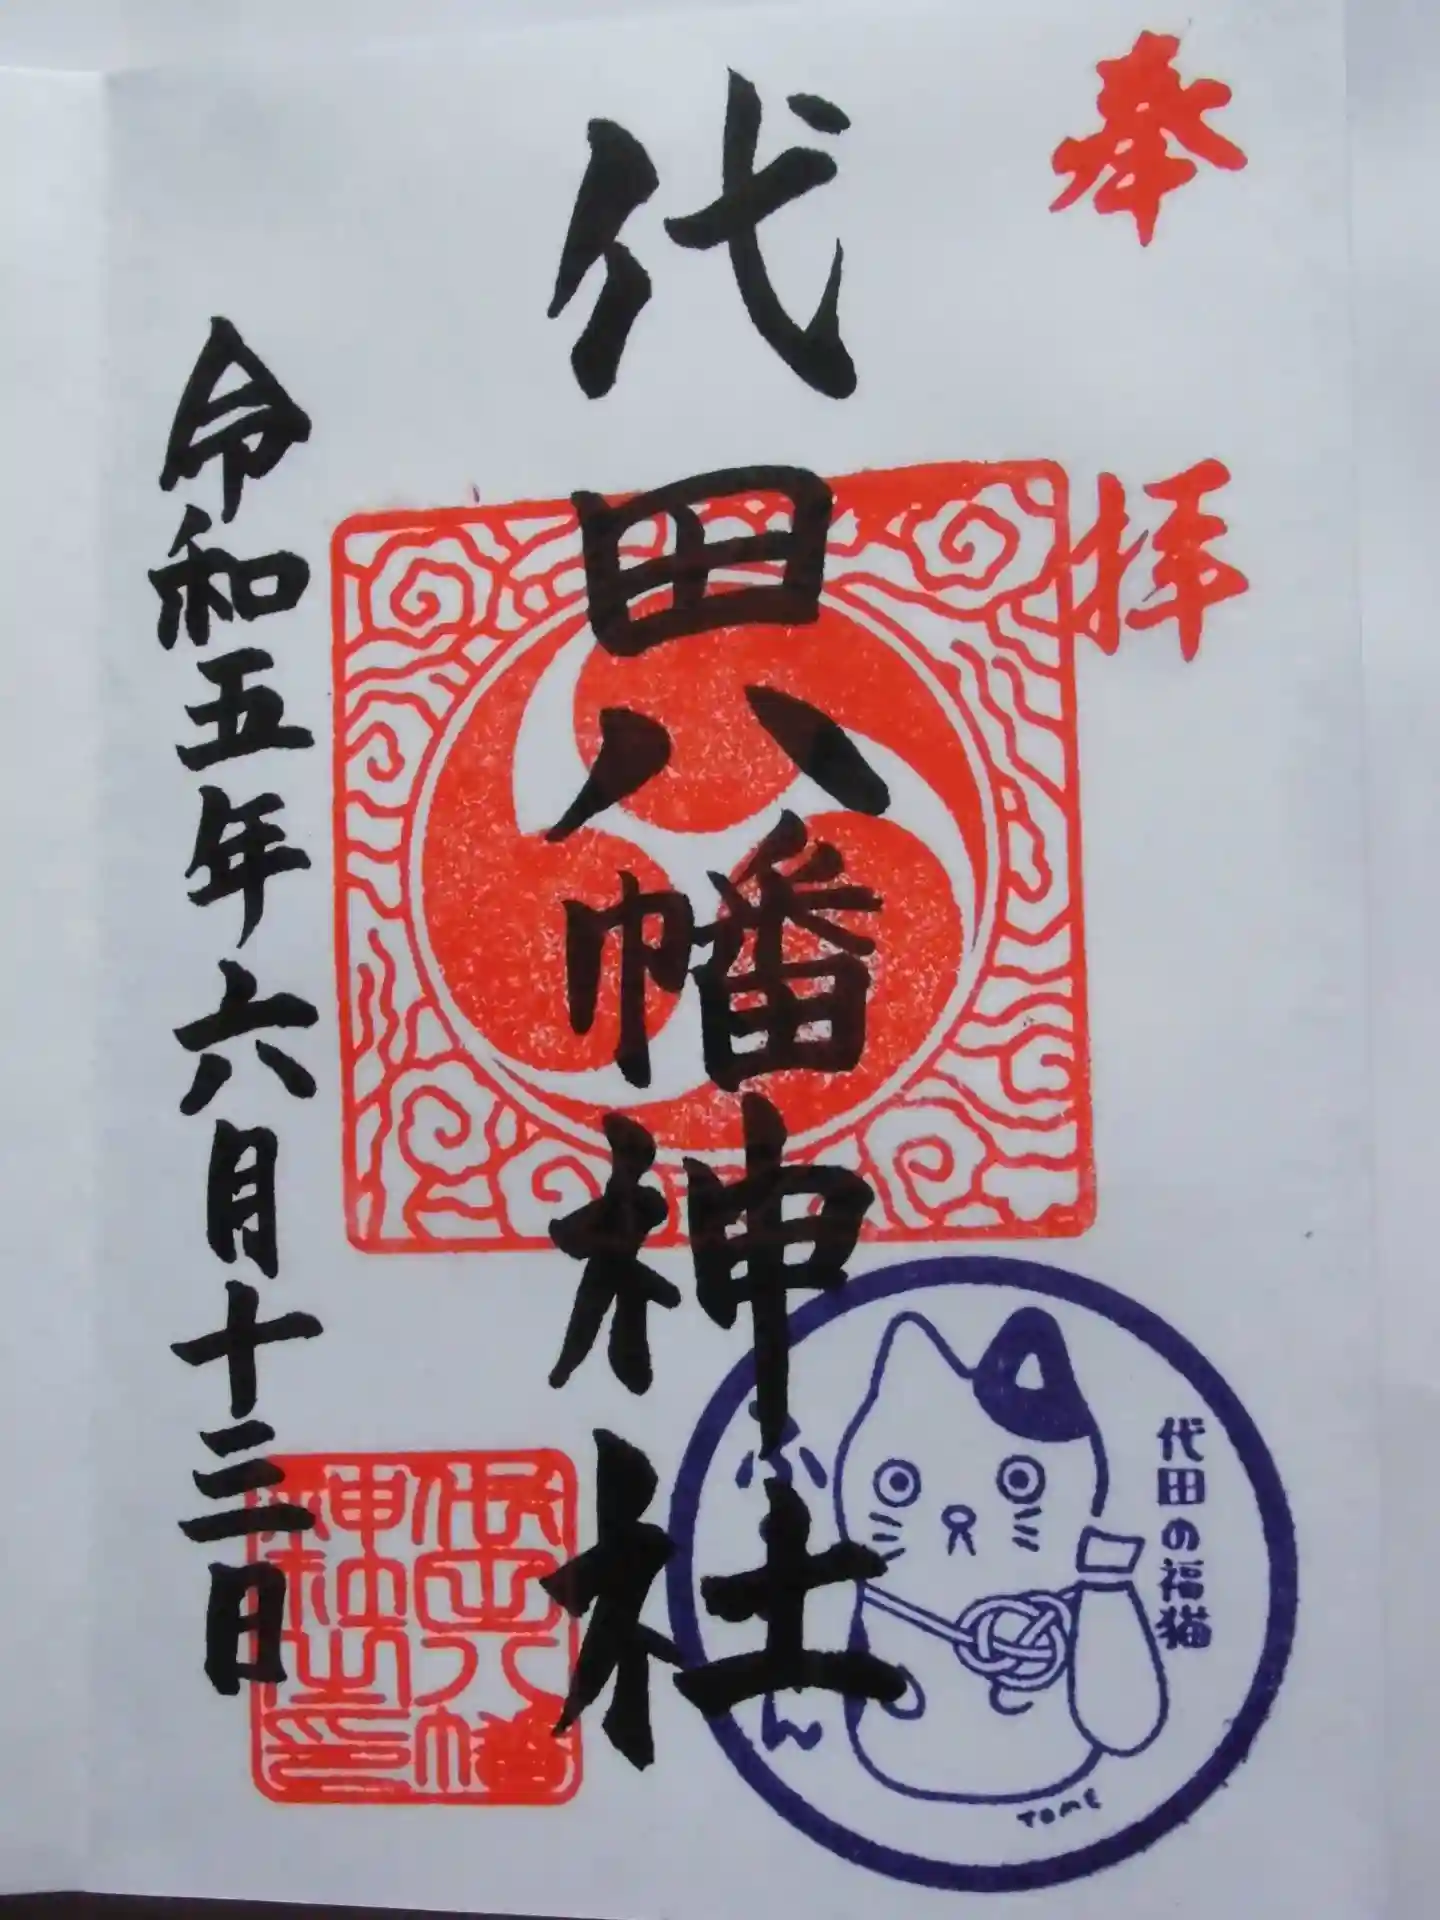 奉拝
代田八幡神社
令和五年六月十三日
代田の福猫
TOME
代田八幡
神社之印